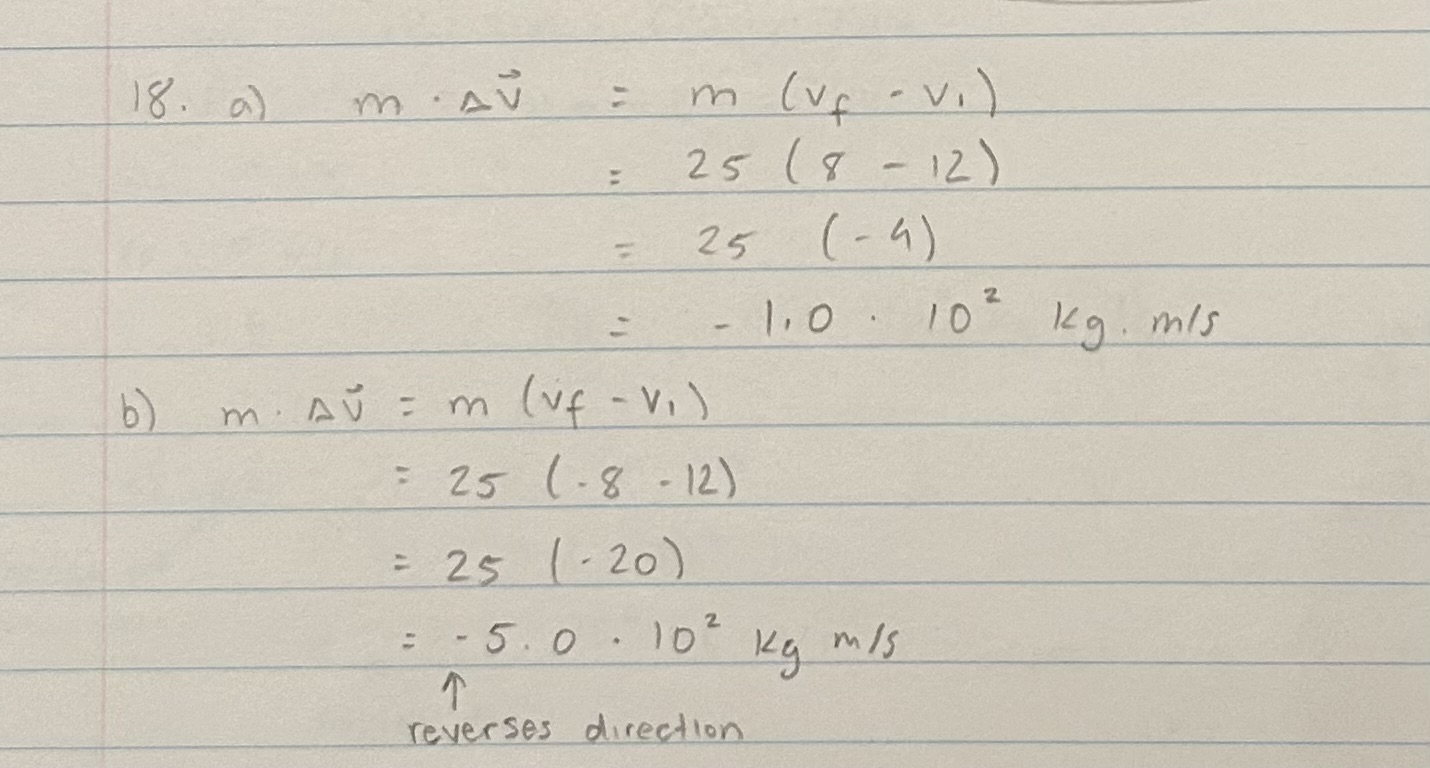 18. a) m · Δv⃗ = m (vf - v₁)
= 25 (8 - 12)
= 25 (-4)
= - 1.0 · 10² kg. m/s
b) m · Δv⃗ = m (vf - v₁)
= 25 (-8 - 12)
= 25 (-20)
= - 5.0 · 10² kg m/s
↑
reverses direction